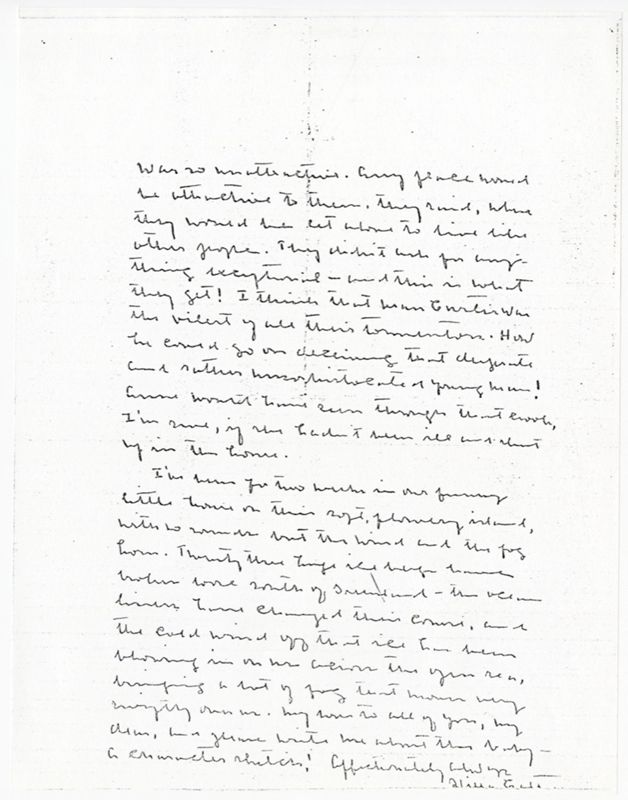 was so unattractive. Any place would
be attractive to them, they said, where
they would be let alone to live like
other people. They didn't ask for any-
thing exceptional – and this is what
they get! I think that man Curtis was
the vilest of all their tormentors. How
he could go on deceiving that desperate
and rather unsophisticated young man!
Anne would have seen through that crook,
I'm sure, if she hadn't been ill and shut
up in the house.
I've been for two weeks in our funny
little house on this soft, flowery island,
with no sounds but the wind and the fog
horn. Twenty three huge ice bergs have
broken loose south of Greenland – the ocean
liners have changed their course, and
the cold wind off that ice has been
blowing in on us across the open sea,
bringing a lot of fog that moves very
swiftly over us. My love to all of you, my
dear, and please write me about the baby –
a character sketch! Affectionately always
Willa Cather